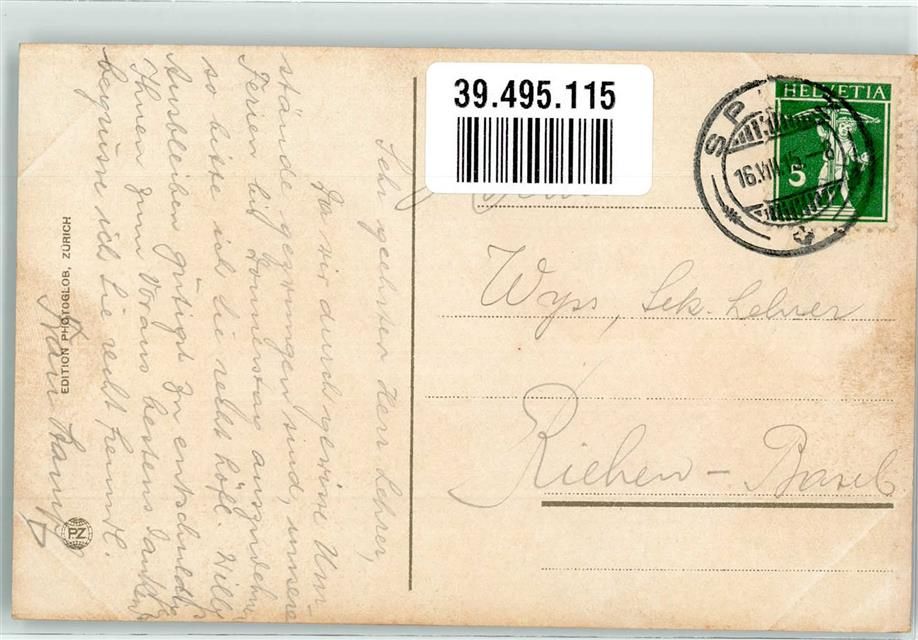 39.495.115
HELVETIA
5
SP
16.VIII.15.-8
Wyss, Sek. Lehrer
Riehen - Basel
Sehr geehrter Herr Lehrer,
Da wir durch gewisse Um-
stände gezwungen sind, unsere
Ferien bis Donnerstag auszudehnen
so bitte ich Sie recht höfl. Willys
Ausbleiben gütigst zu entschuldg.
Ihnen zum Voraus bestens dankend
begrüsse ich Sie recht freundl.
EDITION PHOTOGLOB, ZÜRICH
PZ